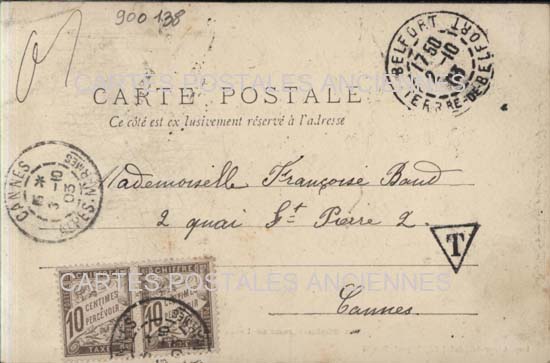 900 138
BELFORT
17 50
2-10
03
TERRE-DE-BELFORT
CARTES POSTALES ANCIENNES
CARTE POSTALE
Ce côté est exclusivement réservé à l'adresse
CANNES
5 *
3-10
03
ALPES-MARMES
Mademoiselle Françoise Baud
2 quai St Pierre 2.
T
CARTES POSTALES ANCIENNES
Cannes.
10 CENTIMES A PERCEVOIR
TAXE
CHIFFRE
10 CENTIMES